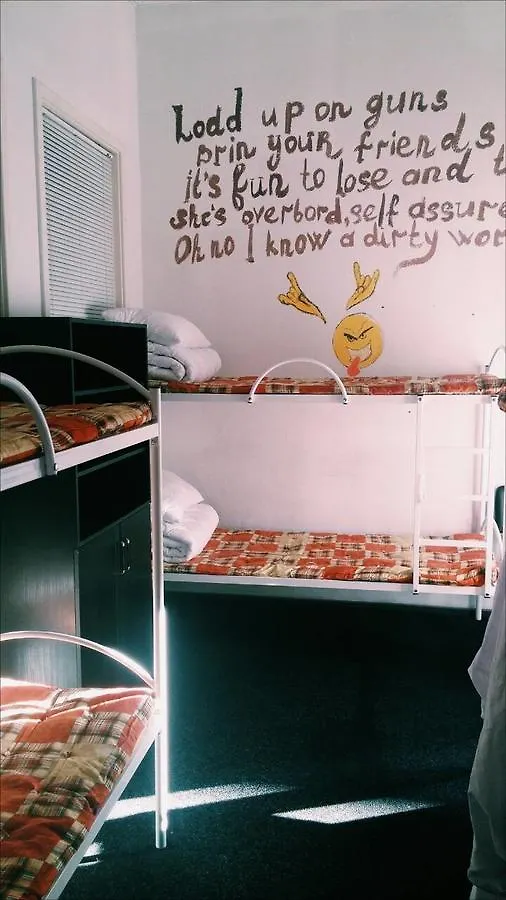 Lodd up on guns
brin your friends
it's fun to lose and t
she's overbord, self assure
Oh no I know a dirty wor